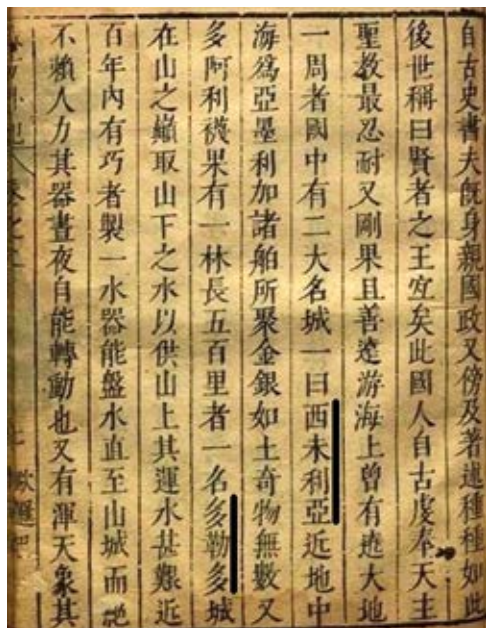 自古史書夫既身親國政又傍及著述種種如此
後世稱曰賢者之王宐矣此國人自古虔奉天主
聖教最忍耐又剛果且善遠游海上曾有遶大地
一周者國中有二大名城一曰西未利亞近地中
海爲亞墨利加諸舶所聚金銀如土奇物無數又
多阿利襪果有一林長五百里者一名多勒多城
在山之巔取山下之水以供山上其運水甚艱近
百年內有巧者製一水器能盤水直至山城而絕
不賴人力其器晝夜自能轉動也又有渾天象其
卷之二